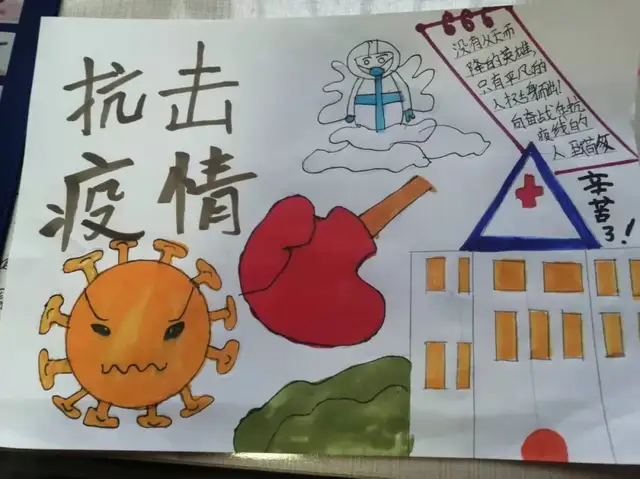 抗击
疫情
没有从天而
降的英雄,
只有平凡的
人挺身而出!
向奋战在抗
疫线的
人致敬
辛苦
了!